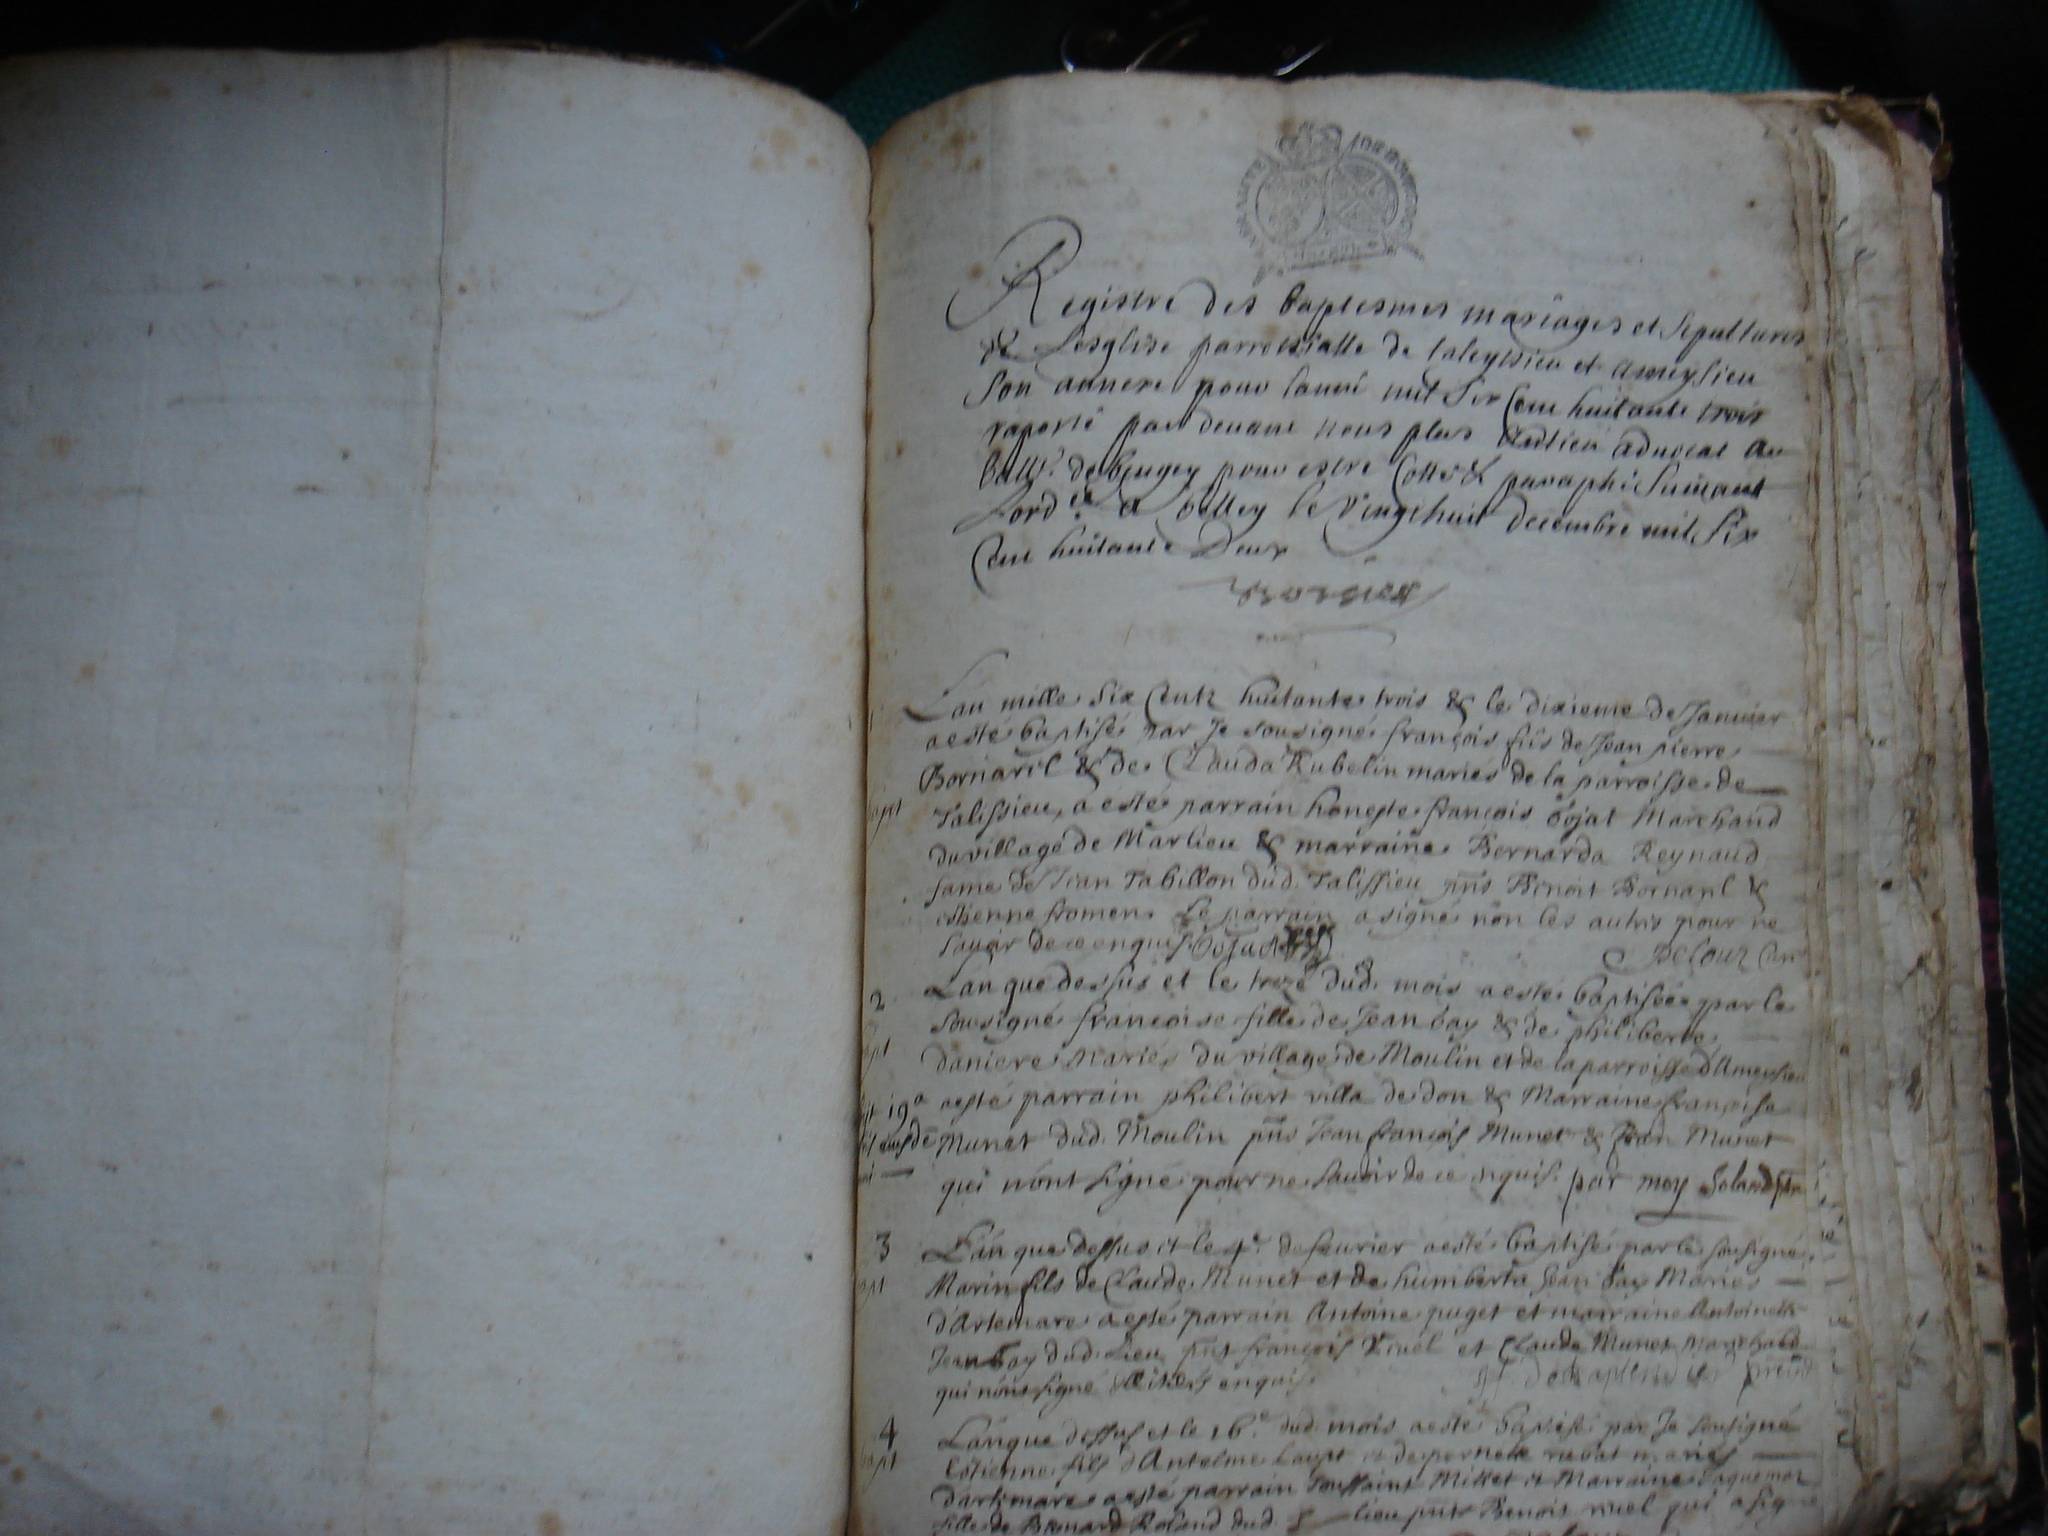 Registre des baptesmes mariages et sepultures
de Lesglise parrossialle de taleyssieu et ameysieu
son annexe pour lanné mil six Cent huitante trois
raporté par devant nous plus advocat au
de beugey pour estre Cotté & paraphé suivant
Lord.ce a belley le vingt huit decembre mil six
Cent huitante Deux
1 L'an mille six Centz huitante trois & le dixieme de Janvier
a esté baptisé par Je sousigné françois fils de Jean pierre
Bornard & de Clauda Rubelin mariés de la parroisse de
bapt Talissieu, a esté parrain honeste françois bojat Marchand
du village de Marlieu & marraine Bernarda Reynaud
fame de Jean Tabillon dud. Talissieu pñs Benoit Bornard &
estienne fromen. Le parrain a signé non les autres pour ne
sçavoir de ce enquis.
2 Lan que dessus et le treze dud. mois a esté baptisée par le
sousigné françoise fille de Jean bay & de philiberte
bapt daniere mariés du village de Moulin et de la parroisse d'Ameysieu
19a a esté parrain philibert villa de don & Marraine françoise
Munet dud. Moulin pñs Jean françois Munet & Jean Munet
qui n'ont signé pour ne savoir de ce enquis. par moy
3 L'an que dessus et le 4e. de feurier a esté baptisé par le sousigné
bapt Marin fils de Claude Munet et de humberta Jean bay Mariés
d'Artemare a esté parrain Antoine puget et marraine Antoinette
Jean bay dud. Lieu pñt françois et Claude Munet
qui n'ont signé enquis.
4 L'an que dessus et le 16e. dud. mois a esté baptisé par Je sousigné
bapt Estienne fils d'Antelme et de pernete mariés
d'artemare a esté parrain toussaint Millet et Marraine Jaquemoz
fille de Bernard Roland dud. lieu pñt Benoit qui a sig